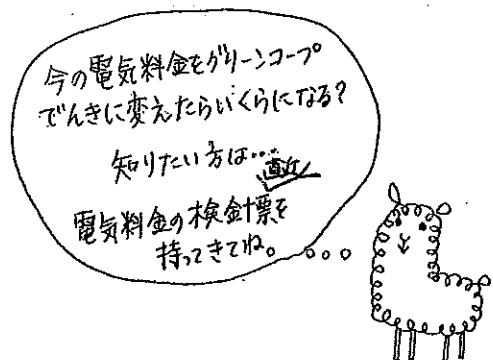 今の電気料金をグリーンコープ
でんきに変えたらいくらになる?
知りたい方は…
直近
電気料金の検針票を
持ってきてね。